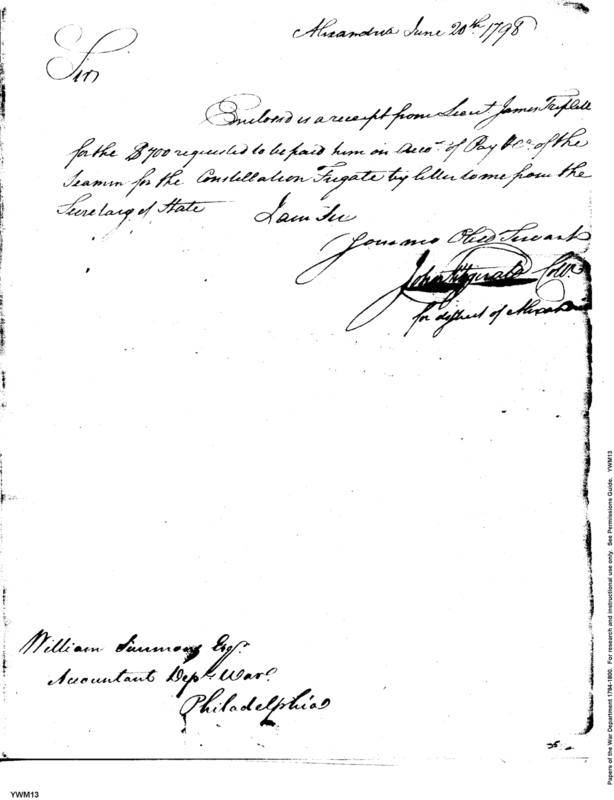 Alexandria June 20th. 1798
Sir
Enclosed is a receipt from Lieut James Triplett
for the $700 requested to be paid him on Acco.t of Pay &c.a of the
Seamen for the Constellation Frigate by letter to me from the
Secretary of State I am Sir
Your mo Obed Servant
John Fitzgerald Collr
for district of Alexandria
William Simmons Esqr.
Accountant Dept. War.
Philadelphia
Papers of the War Department 1784-1800. For research and instructional use only. See Permissions Guide. YWM13
YWM13